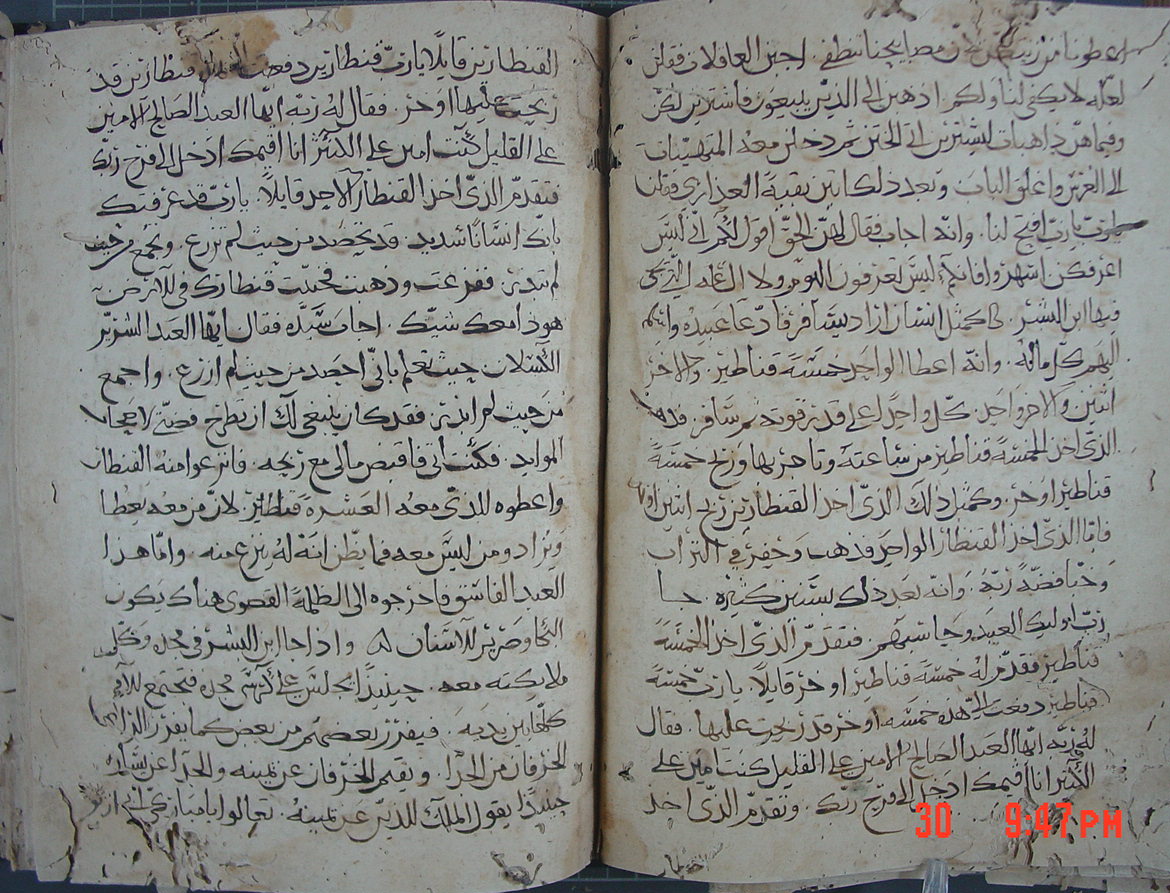 اعطونا من زيتكن مصابيحنا تنطفي اجبن العاقلات فقلن
لعله لا يكفي لنا ولكم اذهبن الى الذين يبيعون فاشترين لكن
وفيما هن ذاهبات ليشترين اتى الختن ثم دخلن معه المتهييات
الى العرس واغلق الباب وبعد ذلك اتين بقية العذارى فقلن
يارب يارب افتح لنا. وانه اجاب فقال لهن الحق اقول لكم اني ليس
اعرفكن اسهروا فانكم ليس تعرفون اليوم ولا الساعه التي يجي
فيها ابن البشر. كمثل انسان اراد يسافر فادعا عبيده واسلم
اليهم كل ماله. وانه اعطا الواحد خمسة قناطير. والاخر
اثنين والاخر واحد. كل واحد على قدر قوته ثم سافر. فذهب
الذي اخذ الخمسة قناطير من ساعته وتاجر بها وربح خمسة
قناطير اوخر. وكمثل ذلك الذي اخذ القنطارين ربح اثنين اوخر
فاما الذي اخذ القنطار الواحد فذهب وحفر في التراب
وخبا فضة ربه. وانه بعد ذلك بسنين كثيره. جا
رب اوليك العبيد وحاسبهم. فتقدم الذي اخذ الخمسة
قناطير فقدم له خمسة قناطير اوخر قايلا. يارب خمسة
قناطير دفعت الي هذه خمسه اوخر قد ربحت عليها. فقال
له ربه ايها العبد الصالح الامين على القليل كنت امين على
الكثير انا اقيمك ادخل الى فرح ربك. وتقدم الذي اخذ
القنطارين قايلا يارب قنطارين دفعت قنطارين قد
ربحت عليهما اوخر. فقال له ربه ايها العبد الصالح الامين
على القليل كنت امين على الكثير انا اقيمك ادخل الى فرح ربك
فتقدم الذي اخذ القنطار الاحد قايلا. يارب قد عرفتك
بانك انسانا شديد. قد تحصد من حيث لم تزرع. وتجمع من حيث
لم تبذر. ففزعت وذهبت فخبيت قنطارك في الارض
هوذا معك شيك. اجاب سيده فقال ايها العبد الشرير
الكسلان حيث تعلم باني احصد من حيث لم ازرع. واجمع
من حيث لم ابذر. فقد كان ينبغي لك ان تطرح فضتي لاصحاب
الموايد. فكنت اتي فاقبض مالي مع ربحه. فانزعوا منه القنطار
واعطوه للذي معه العشرة قناطير. لان من معه يعطا
ويزاد ومن ليس معه فما يظن انه له ينزع منه. واما هذا
العبد الفاسق فاخرجوه الى الظلمة القصوى هناك يكون
البكا وصرير الاسنان واذا جا ابن البشر في مجده وكل
ملايكته معه. حينيذ يجلس على كرسي مجده فتجتمع الامم
كلها بين يديه. فيفرز بعضهم من بعض كما يفرز الراعي
الخرفان من الجدا. ويقيم الخرفان عن يمينه والجدا عن يساره
حينيذ يقول الملك للذين عن يمينه. تعالوا يا مباركي ابي
30 9:47 PM